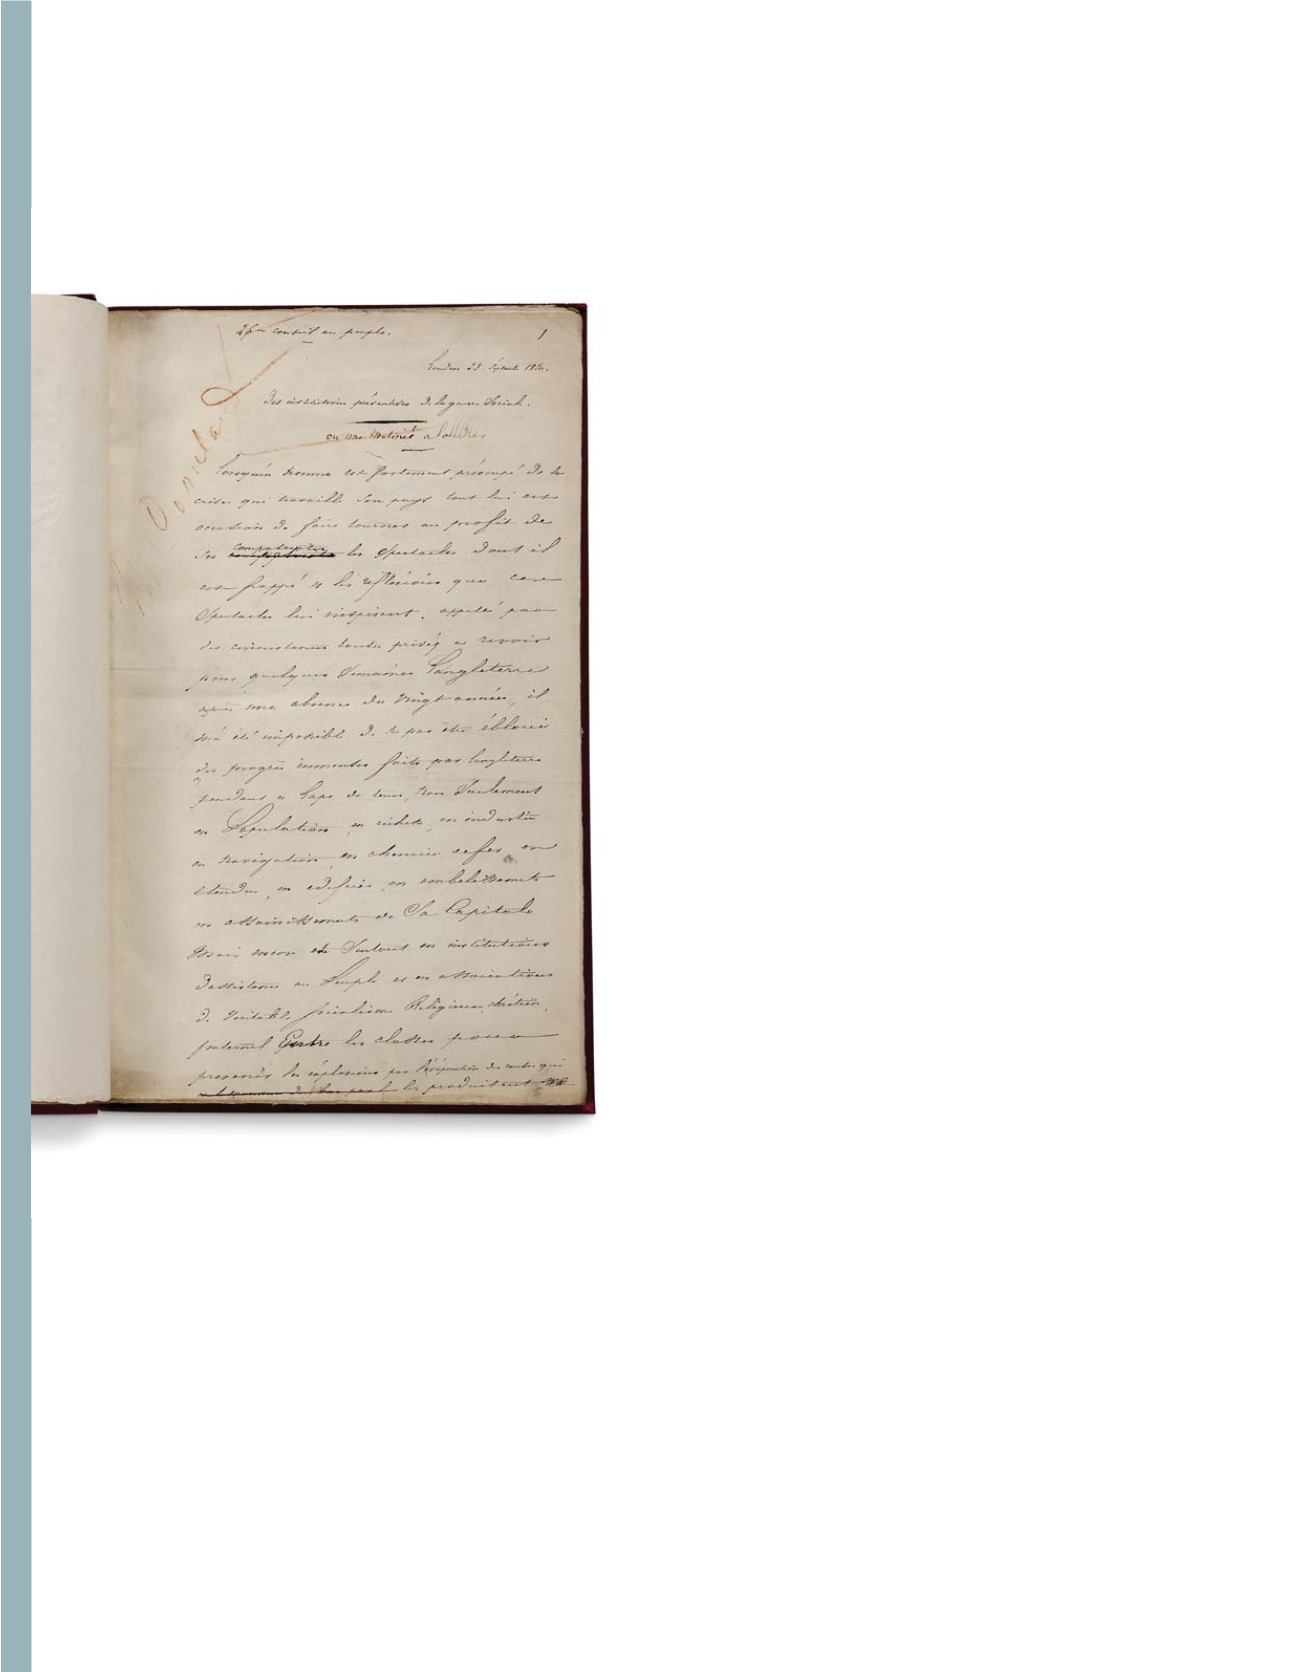 26me conseil au peuple.
1
Londres 22. Septembre 1850.
Des institutions préventives de la guerre Sociale.
ou une Matinée a londres
Lorsqu'un homme est fortement préocupé de la
crise qui travaille Son pays tout lui est
occasion de faire tourner au profit de
Ses compatriotes les Spectacles dont il
est frappé et les réflexions que ces
Spectacles lui inspirent. appelé par
des circonstances toutes privées a revoir
pour quelques Semaines L'angleterre
après une absence de Vingt années, il
m'a été impossible de ne pas être ébloui
des progrès immenses faits par l'angleterre
pendant ce laps de tems, Non Seulement
en Population, en richesse, en industrie
en Navigation, en chemins de fer, en
étendue, en édifices, en embelissements
en assainissements de Sa Capitale
Mais encore et Surtout en institutions
d'assistance au Peuple et en associations
de Veritable Socialisme Religieux, chrétien,
fraternel Entre les classes pour
prevenir les explosions par l'évaporation des causes qui
les produisent